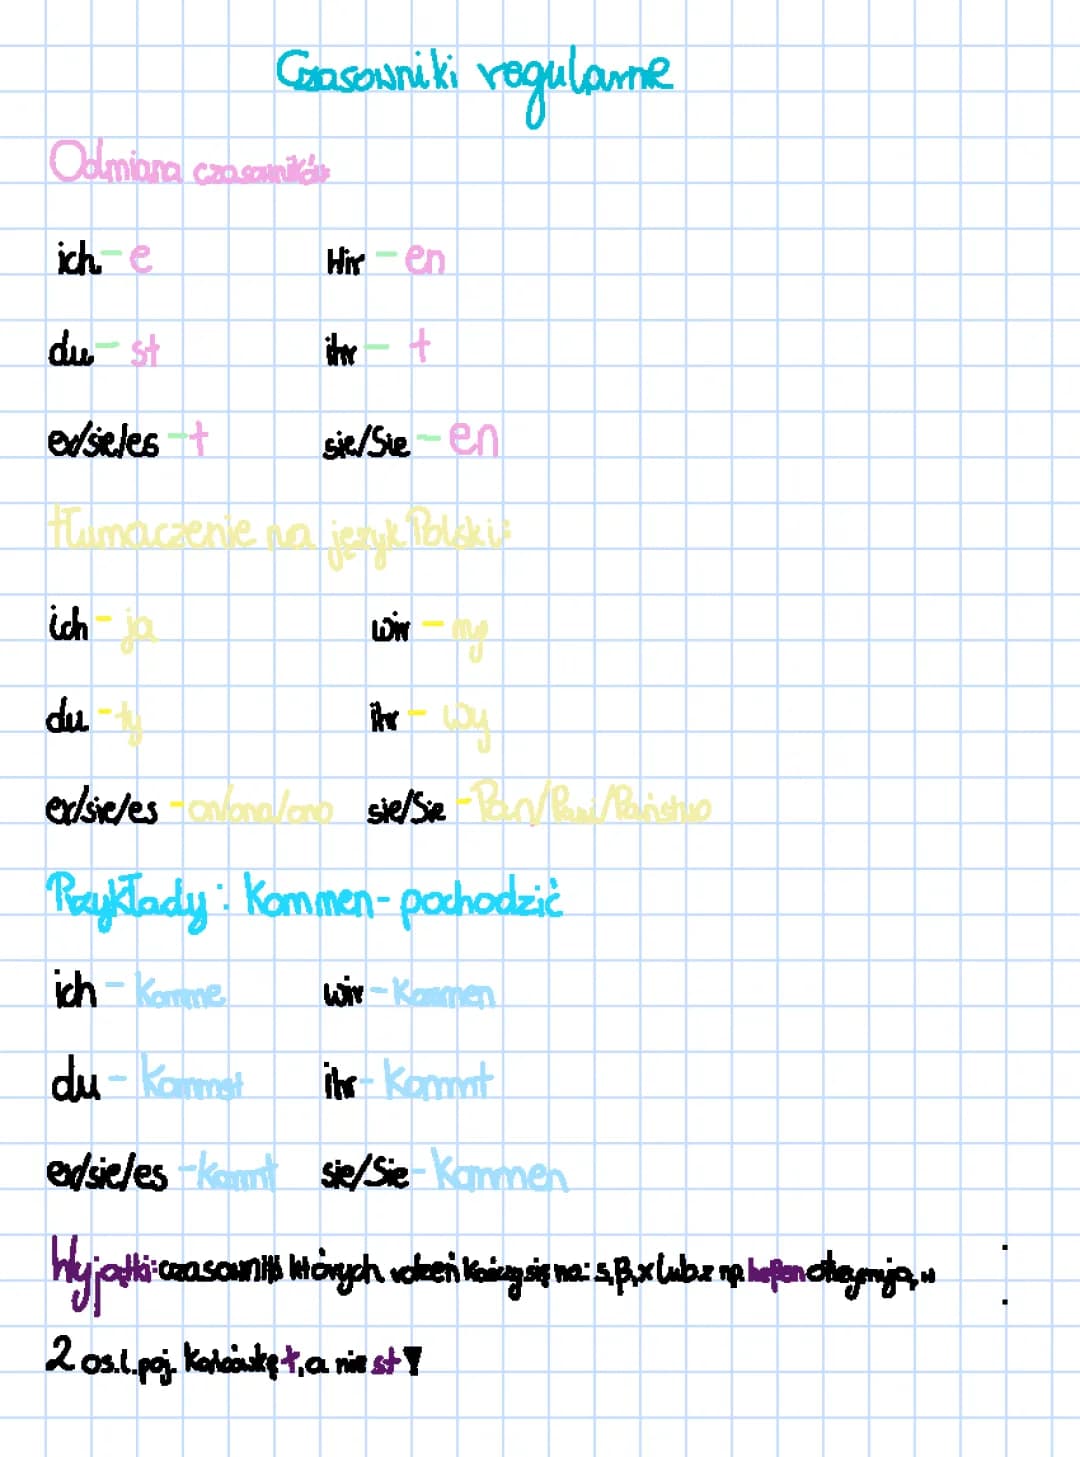 Czasowniki regularne
Odmiana czasowników
ich - e Wir - en
du - st ihr - t
er/sie/es - t sie/Sie - en
tłumaczenie na język Polski:
ich - ja wir - my
du - ty ihr - wy
er/sie/es - on/ona/ono sie/Sie - Pan/Pani/Państwo
Przykłady: Kommen - pochodzić
ich - Komme wir - Kommen
du - Kommst ihr - Kommt
er/sie/es - Kommt sie/Sie - Kommen
Wyjątki: czasowniki których rdzeń kończy się na: s, β, x lub z np. otrzymują w
2 os.l.poj. Końcówkę t, a nie st !